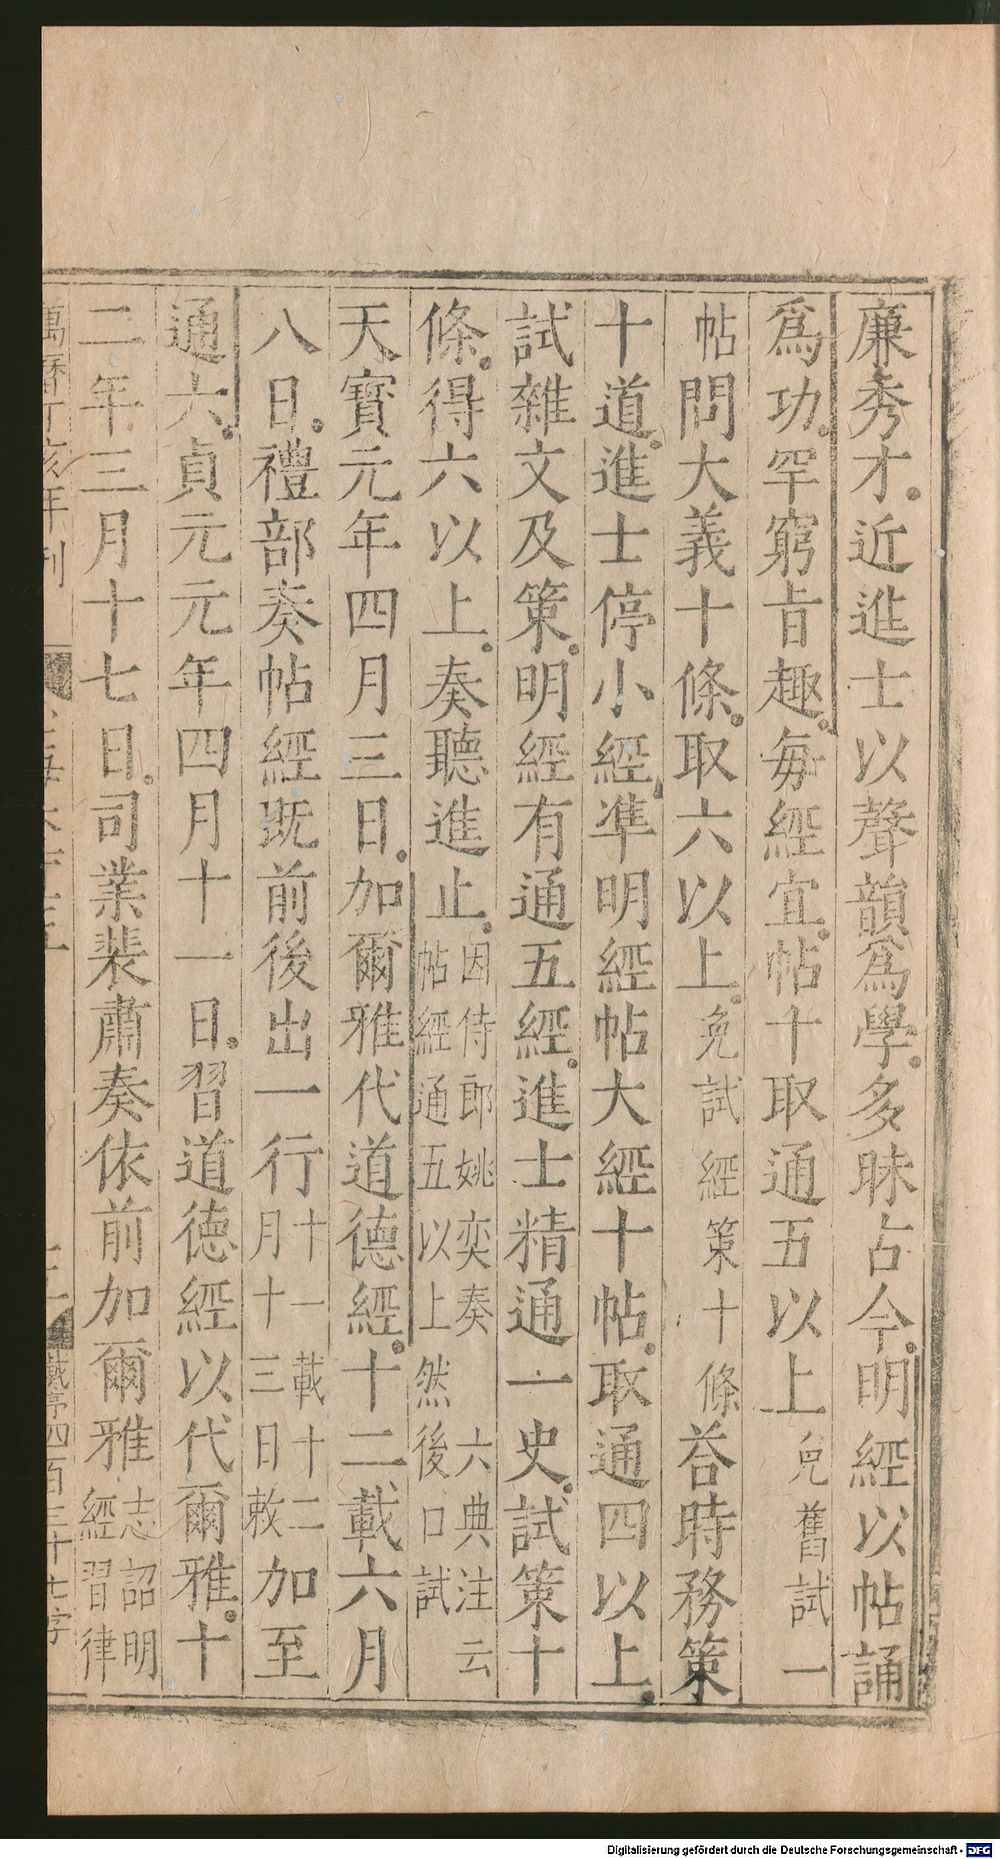 廉秀才近進士以聲韻爲學多昧古今明經以帖誦
爲功罕窮旨趣每經宜帖十取通五以上免舊試一
帖問大義十條取六以上免試經策十條荅時務策
十道進士停小經準明經帖大經十帖取通四以上
試雜文及策明經有通五經進士精通一史試策十
條得六以上奏聽進止因侍郎姚奕奏六典注云
帖經通五以上然後口試
天寶元年四月三日加爾雅代道德經十二載六月
八日禮部奏帖經既前後出一行十一載十二
月十三日敕加至
通六貞元元年四月十一日習道德經以代爾雅十
二年三月十七日司業裴肅奏依前加爾雅志詔明
經習律
萬曆丁亥年刊
戴序四百三十七字
Digitalisierung gefördert durch die Deutsche Forschungsgemeinschaft - DFG